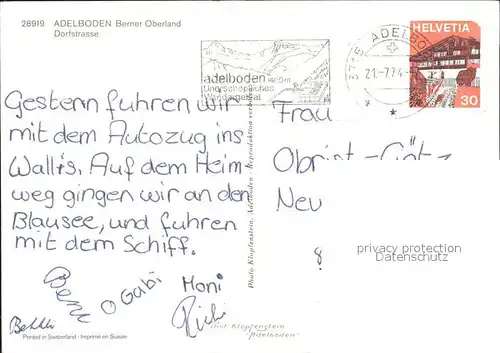 28919 ADELBODEN Berner Oberland
Dorfstrasse
HELVETIA
30
3715 ADELBODEN
21.-7.74
adelboden 1400m
Unerschöpfliches
Wandergebiet
Gestern fuhren wir
mit dem Autozug ins
Wallis. Auf dem Heim
weg gingen wir an den
Blausee, und fuhren
mit dem Schiff.
Gabi Moni
Frau
Obrist-Götz
Neu
8
privacy protection
Datenschutz
Photo Klopfenstein, Adelboden - Reproduktion verboten
Photo Klopfenstein
"Adelboden"
Printed in Switzerland - Imprimé en Suisse